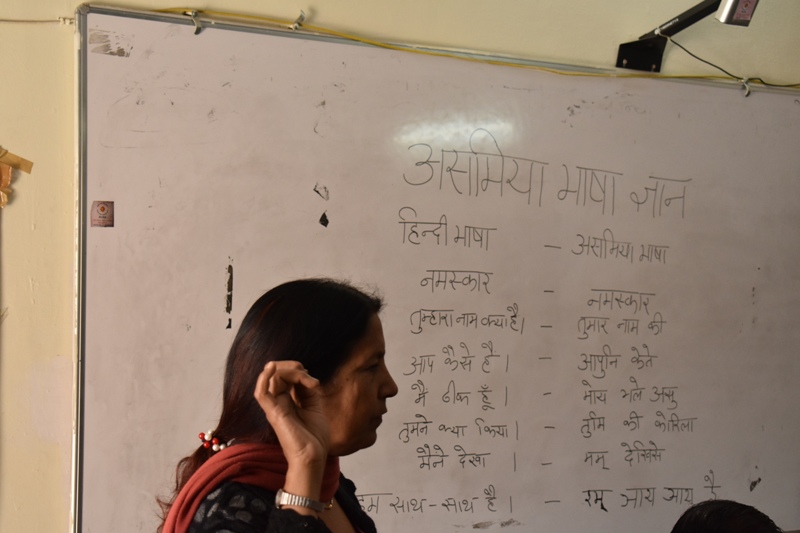 असमिया भाषा ज्ञान
हिन्दी भाषा - असमिया भाषा
नमस्कार - नमस्कार
तुम्हारा नाम क्या है। - तुमार नाम की
आप कैसे है। - आपुनि केते
मै ठीक हूँ। - मोय भले असु
तुमने क्या किया। - तुमि की कोरिला
मैने देखा । - मम् देखिसे
हम साथ-साथ है। -